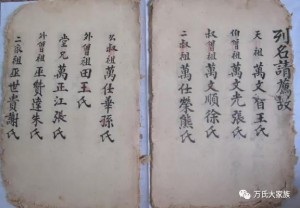 列名請薦故
天祖萬文智王氏
伯曾祖萬文光張氏
叔曾祖萬文順徐氏
二叔祖萬仕榮熊氏
公叔祖萬仕華孫氏
外曾祖田王氏
堂兄萬正江張氏
外曾祖巫賢達朱氏
二家祖巫世貴謝氏
万氏大家族